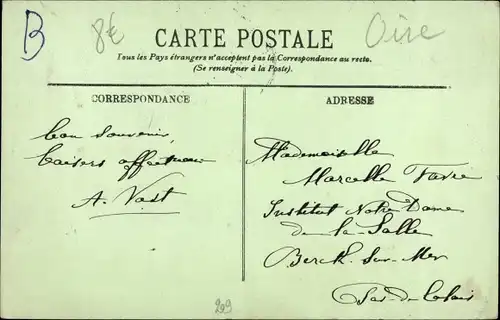 B
8€
Oise
CARTE POSTALE
Tous les Pays étrangers n'acceptent pas la Correspondance au recto.
(Se renseigner à la Poste).
CORRESPONDANCE
ADRESSE
bon souvenir,
baisers affectueux
A. Vast
Mademoiselle
Marcelle Favre
Institut Notre Dame
de-la-Salle
Berck-sur-Mer
Pas-de-Calais
209